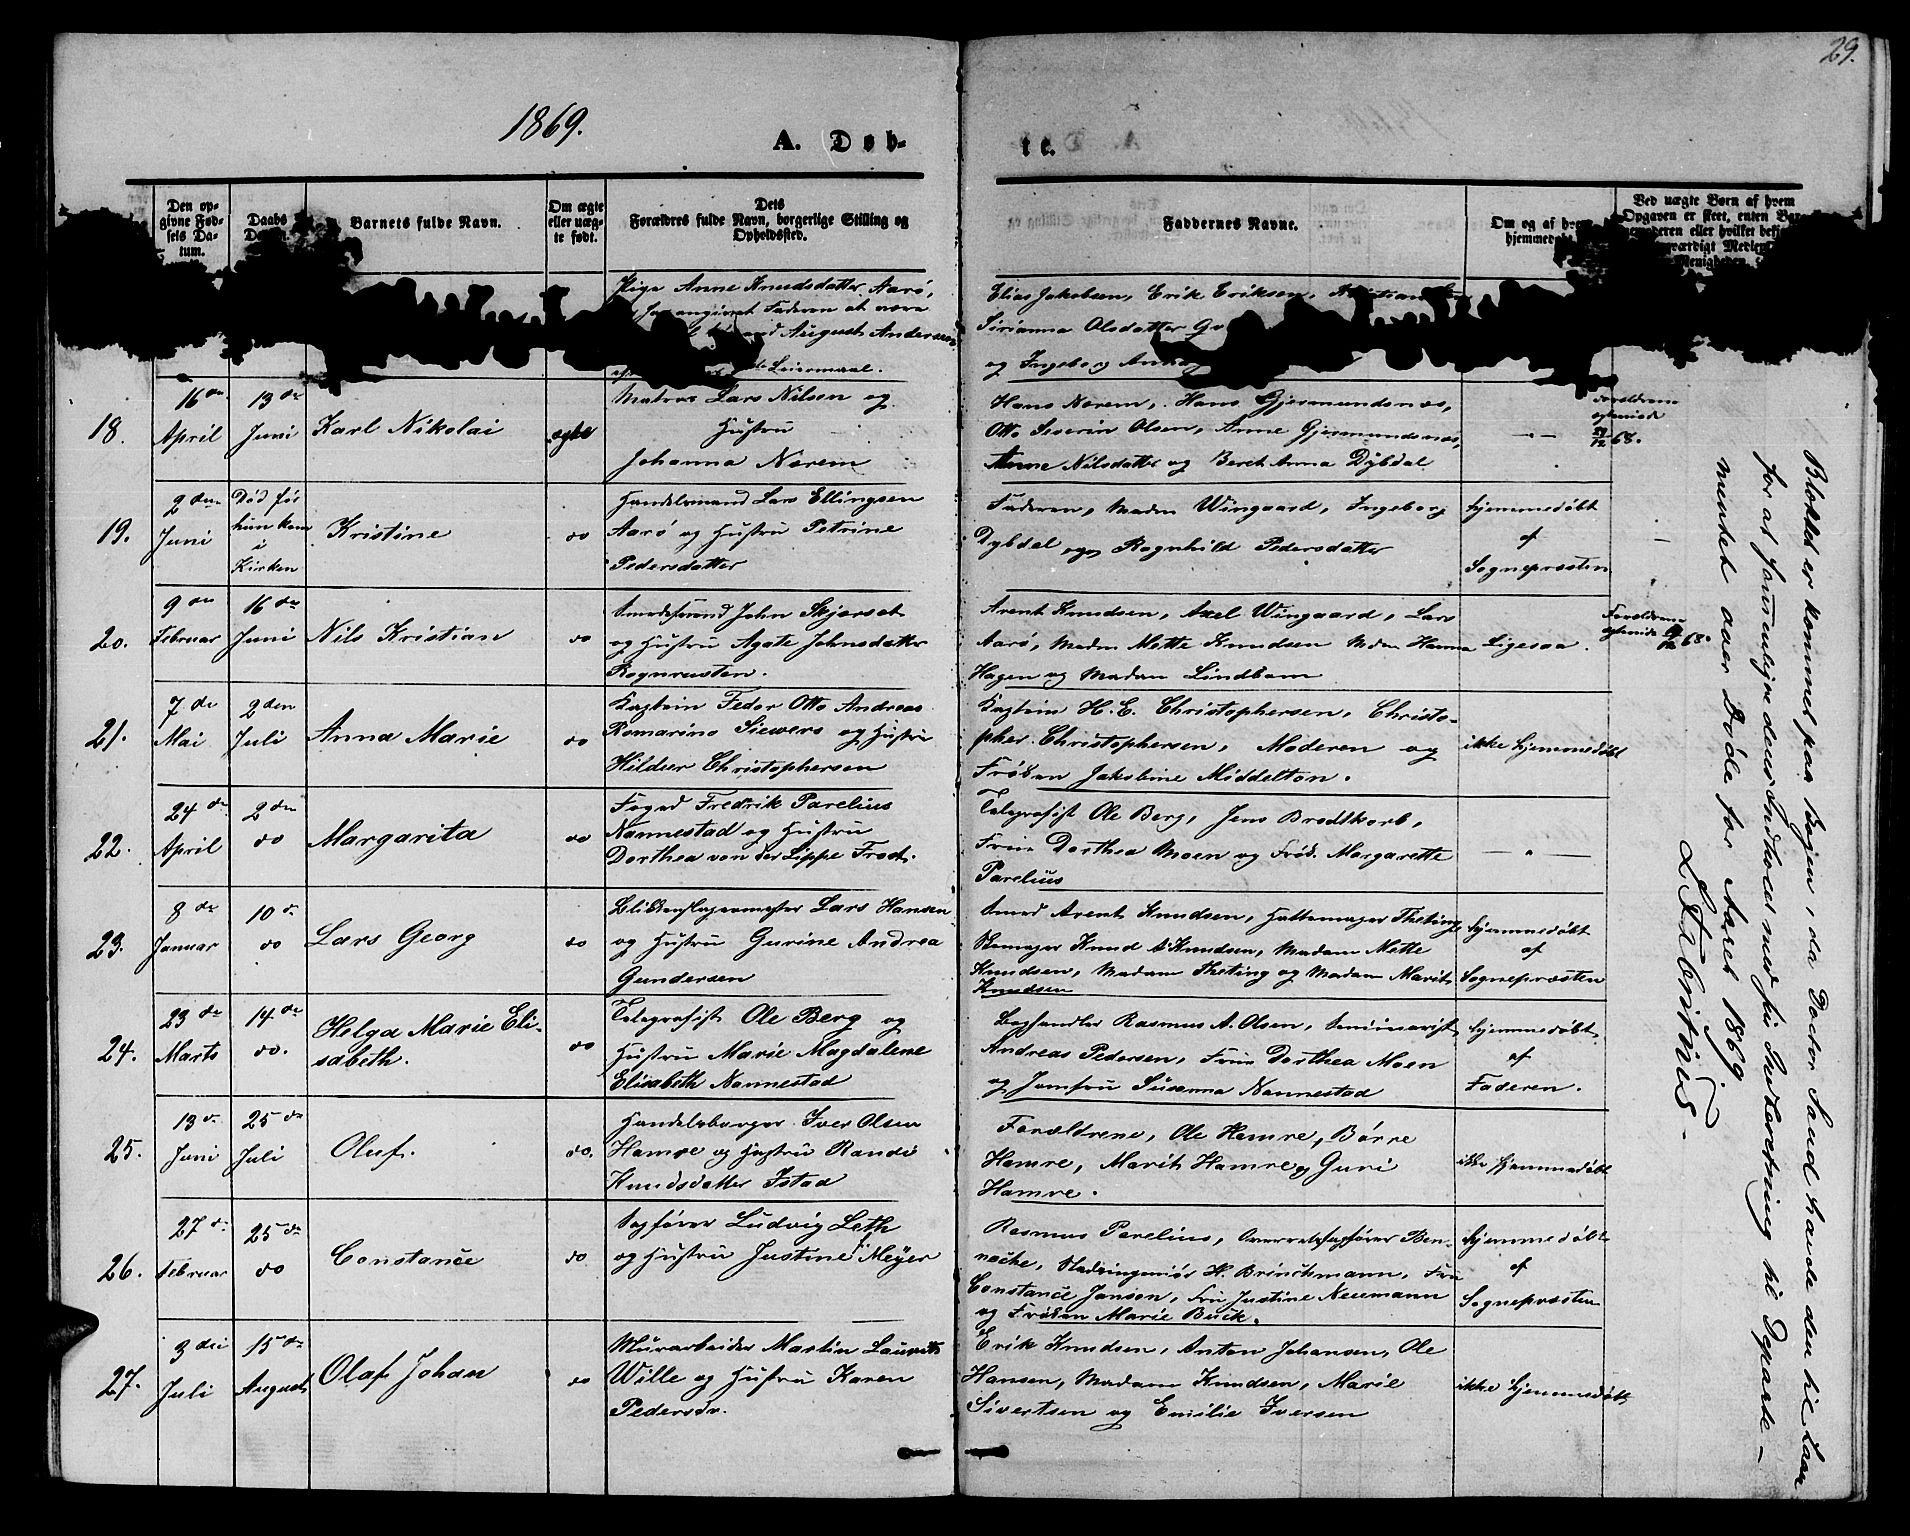 29.
1869.
A. Døb-
te.
Den op-
givne Fød-
sels Da-
tum.
Daabs
Barnets fulde Navn.
Om ægte
eller uæg-
te født.
Dets
Forældres fulde Navn, borgerlige Stilling og
Opholdssted.
Faddernes Navne.
Om og af hvem
hjemmedøbt
Ved uægte Børn af hvem
Opgaven er skeet, enten Bar
nemoderen eller hvilket
værdigt Medlem
Menigheden.
Pige Anne Knudsdatter Aarø,
har angivet Faderen at være
August Andersen
Leiermaal.
Elias Jakobsen, Erik Eriksen, Kristian
Sirianna Olsdatter
og Ingeborg
18.
16de
April
13de
Juni
Karl Nikolai
ægte
Matros Lars Nilsen og
Hustru
Johanna Nerem
Hans Nerem, Hans Gjermundsnæs,
Otto Severin Olsen, Anne Gjermundsnæs,
Anne Nilsdatter og Beret Anna Dybdal
— " —
Forældrene
ægteviede
27/12 68.
19.
2den
Juni
Død før
hun kom
i
Kirken
Kristine
do
Handelsmand Lars Ellingsen
Aarø og Hustru Petrine
Pedersdatter
Faderen, Madm Wingaard, Ingeborg
Dybdal og Ragnhild Pedersdatter
hjemmedøbt
af
Sognepræsten
20.
9de
Februar
16de
Juni
Nils Kristian
do
John Skjørset
og Hustru Agate Johnsdatter
Rognrusten.
Arent Knudsen, Axel Wingaard, Lars
Aarø, Madm Mette Knudsen Mdm Hanna
Hagen og Madam Lindbom
Ligesaa.
Forældrene
ægteviede 68.
21.
7de
Mai
2den
Juli
Anna Marie
do
Kaptein Fedor Otto Andreas
Romarino Siewers og Hustru
Hildur Christophersen
Kaptein H. E. Christophersen, Christo-
pher Christophersen, Moderen og
Frøken Jakobine Middelton.
ikke hjemmedøbt
22.
24de
April
2den
do
Margarita
do
Foged Fredrik Parelius
Nannestad og Hustru
Dorthea von der Lippe Frod.
Telegrafist Ole Berg, Jens Brodtkorb,
Frue Dorthea Moen og Frøk. Margarette
Parelius
— " —
23.
8de
Januar
10de
do
Lars Georg
do
Blikkenslagermester Lars Hansen
og Hustru Gurine Andrea
Gundersen
Smed Arent Knudsen, Hattemager Theting,
Skomager Knud Knudsen, Madam Mette
Knudsen, Madam Theting og Madam Marit
Knudsen
hjemmedøbt
af
Sognepræsten
24.
23de
Marts
14de
do.
Helga Marie Eli-
sabeth.
do
Telegrafist Ole Berg og
Hustru Marie Magdalene
Elisabeth Nannestad
Boghandler Rasmus A. Olsen, Seminarist
Andreas Pedersen, Frue Dorthea Moen
og Jomfru Susanna Nannestad
hjemmedøbt
af
Faderen.
25.
13de
Juni
25de
Juli
Oluf.
do.
Handelsborger Iver Olsen
Hamre og Hustru Randi
Knudsdatter Istad
Forældrene, Ole Hamre, Børre
Hamre, Marit Hamre og Guri
Hamre.
ikke hjemmedøbt
26.
27de
Februar
25de
do
Constance
do
Sagfører Ludvig Leth
og Hustru Justine Meyer
Rasmus Parelius, Overretssagfører Ben-
neche, Stadsingeniør H. Brinchmann, Fru
Constance Jansen, Fru Justine Neumann
og Frøken Marie Buck.
hjemmedøbt
af
Sognepræsten
27.
3die
Juli
15de
August
Olaf Johan
do
Murarbeider Martin Laurits
Wille og Hustru Karen
Pedersdr.
Erik Knudsen, Anton Johansen, Ole
Hansen, Madam Knudsen, Marie
Sivertsen og Emilie Iversen
ikke hjemmedøbt
Blækket er kommet paa Bogen, da Doctor Sand havde den til Laans
for at sammenligne dens Indhold med sin Indberetning til Departe-
mentet over Døde for Aaret 1869.